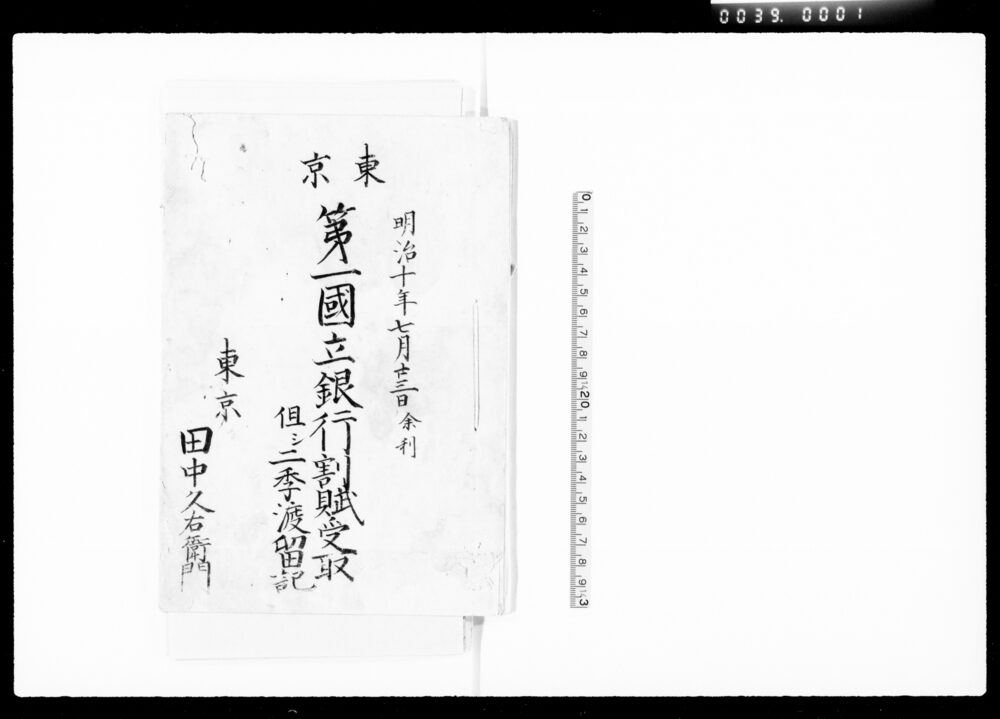 0039. 0001
明治十年七月廿三日 余利
東京
第一國立銀行割賦受取
但シ二季渡留記
東京
田中久右衛門
0 1 2 3 4 5 6 7 8 9 10 1 2 3 4 5 6 7 8 9 20 1 2 3 4 5 6 7 8 9 3